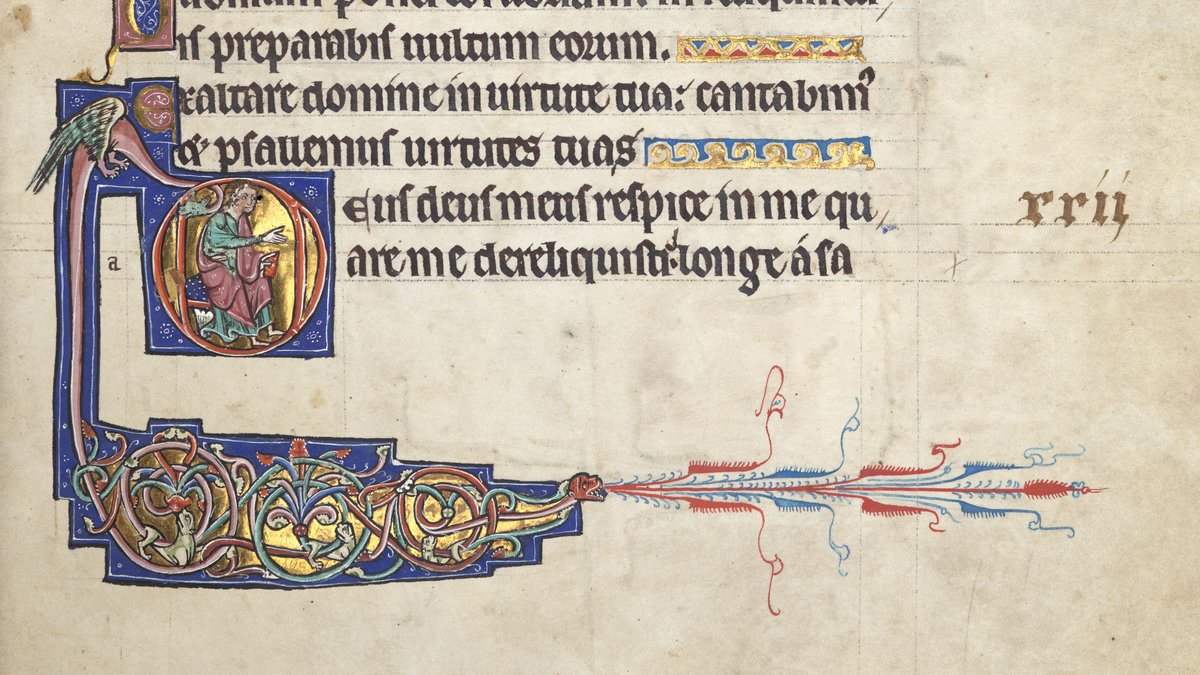 is preparabis uultum eorum.
Exaltare domine in uirtute tua: cantabim᷒
& psallemus uirtutes tuas
Deus deus meus respice in me qu/
xxii
are me dereliquisti: longe á sa
a